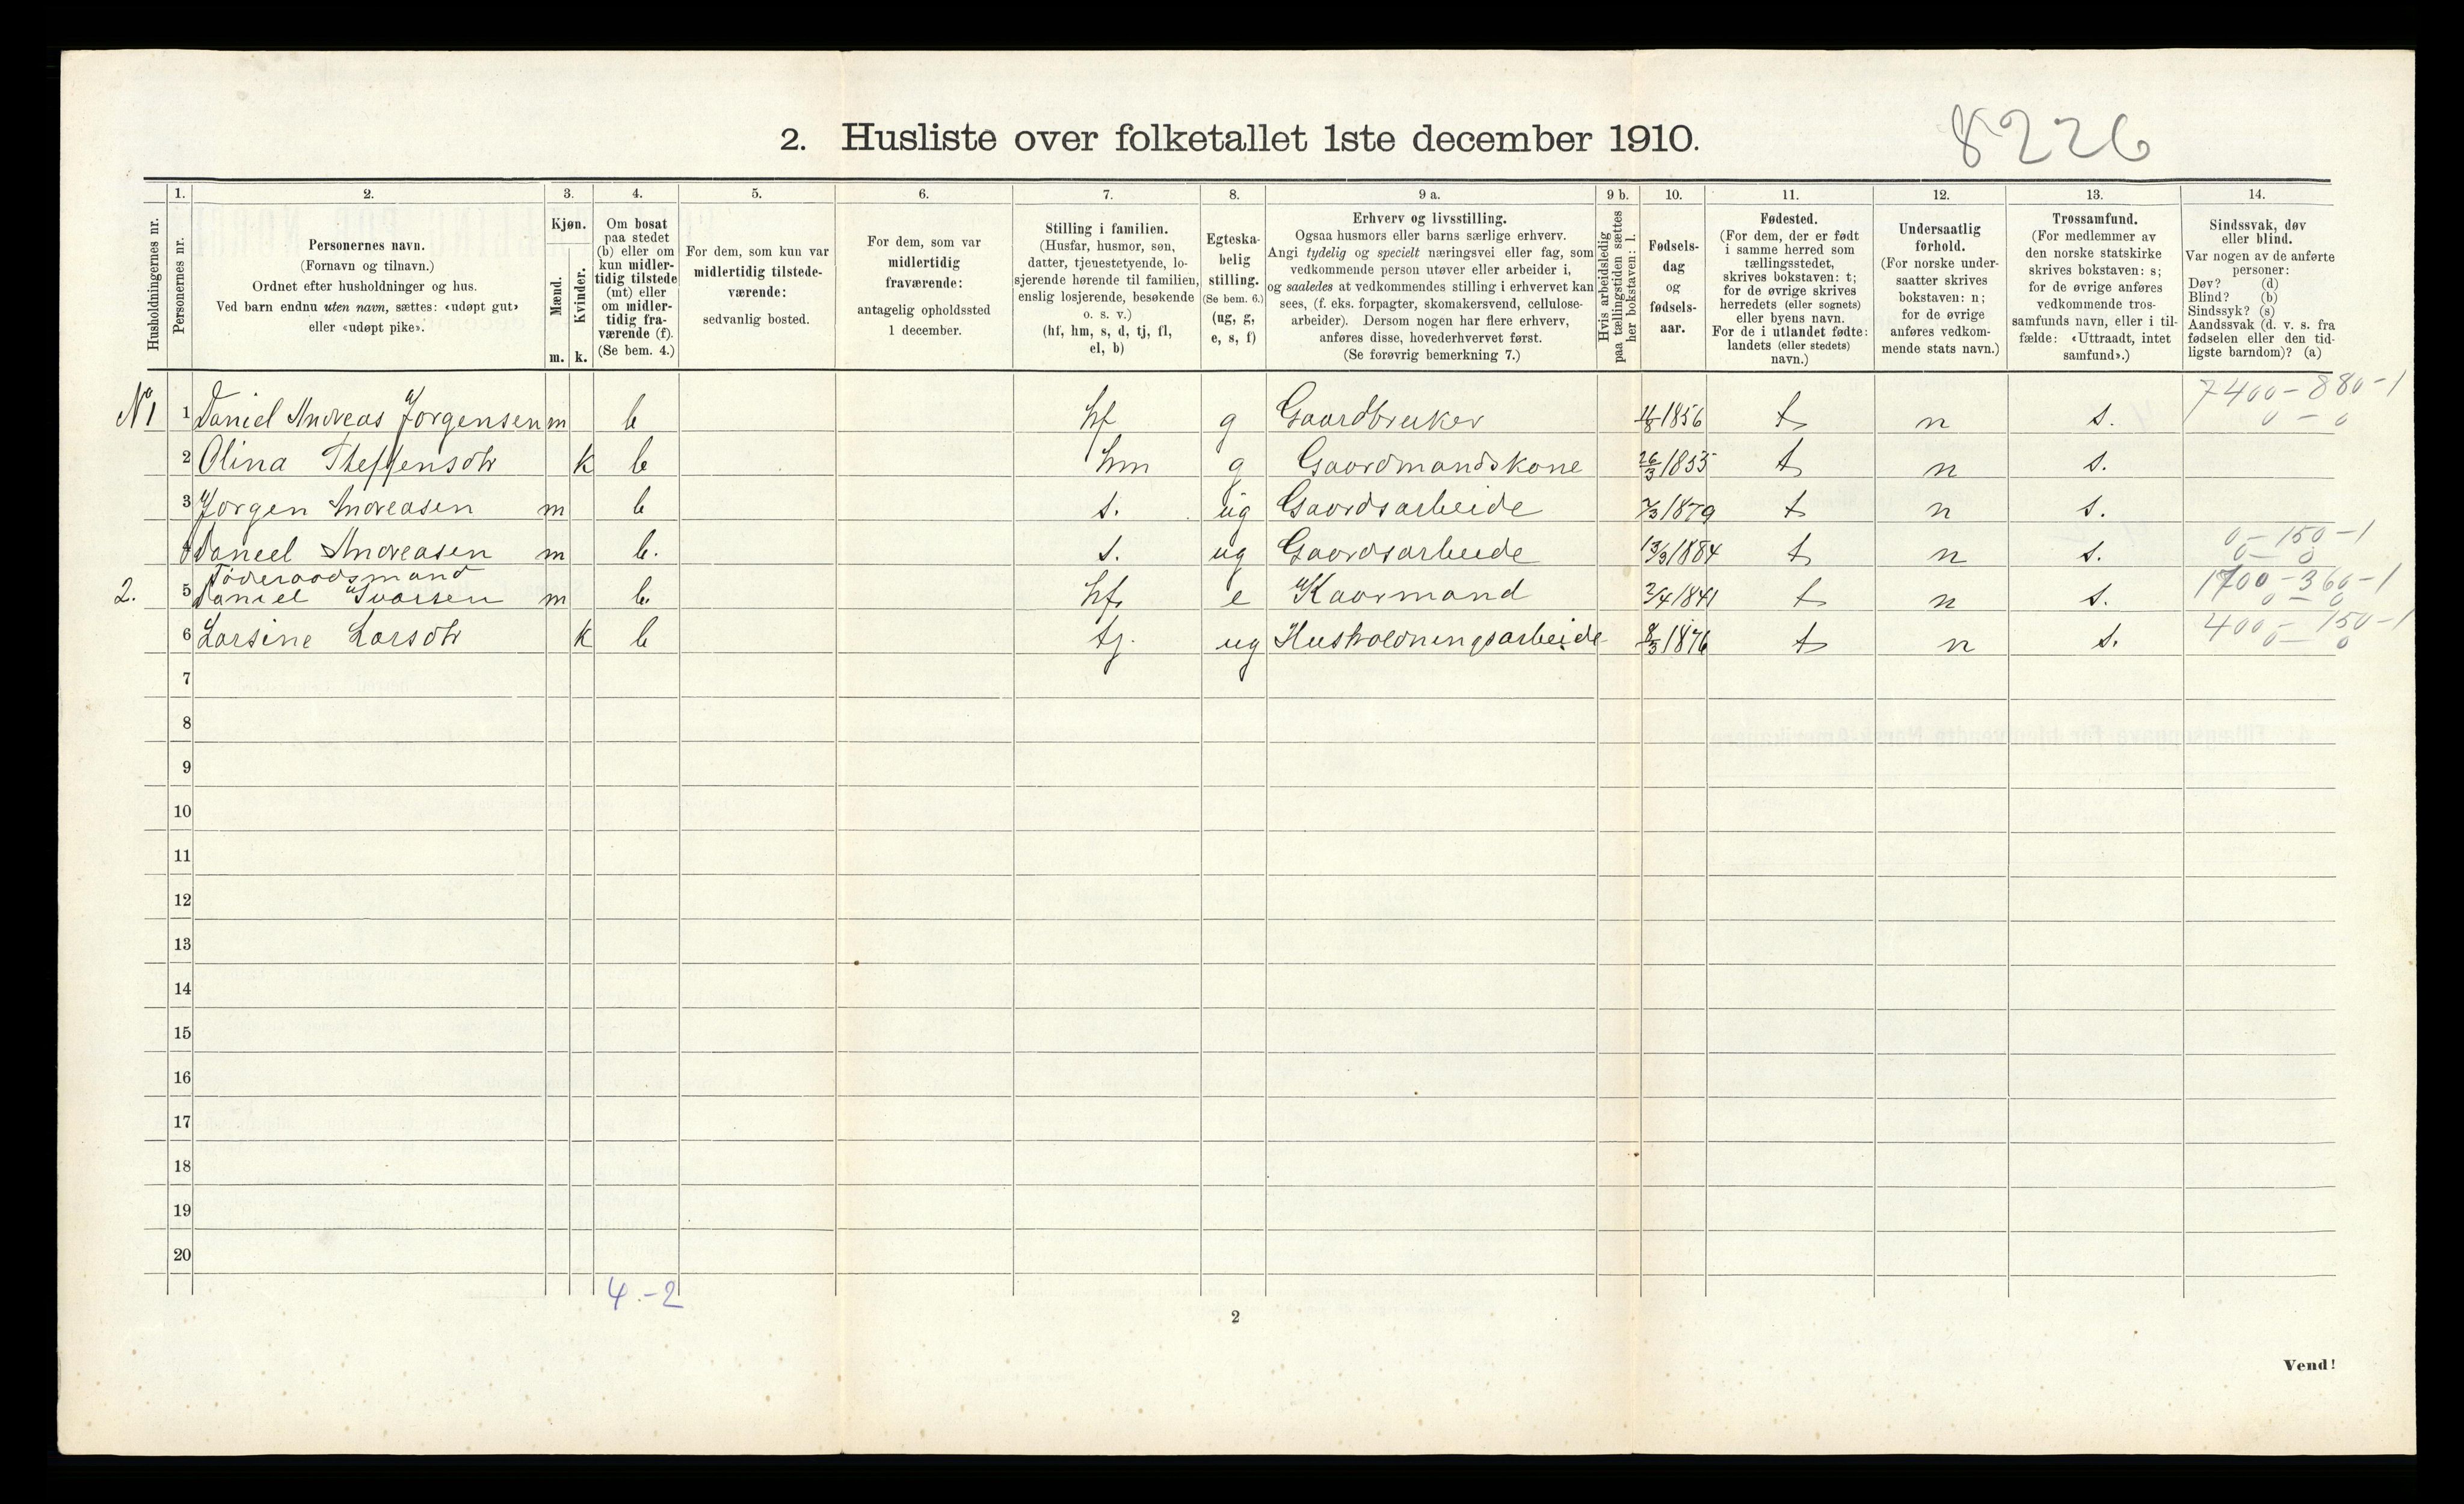 8226
2. Husliste over folketallet 1ste december 1910.
1. 2. 3. 4. 5. 6. 7. 8. 9 a. 9 b. 10. 11. 12. 13. 14.
Husholdningernes nr.
Personernes nr.
Personernes navn.
(Fornavn og tilnavn.)
Ordnet efter husholdninger og hus.
Ved barn endnu uten navn, sættes: «udøpt gut»
eller «udøpt pike».
Kjøn.
Mænd.
Kvinder.
m. k.
Om bosat
paa stedet
(b) eller om
kun midler-
tidig tilstede
(mt) eller
om midler-
tidig fra-
værende (f).
(Se bem. 4.)
For dem, som kun var
midlertidig tilstede-
værende:
sedvanlig bosted.
For dem, som var
midlertidig
fraværende:
antagelig opholdssted
1 december.
Stilling i familien.
(Husfar, husmor, søn,
datter, tjenestetyende, lo-
sjerende hørende til familien,
enslig losjerende, besøkende
o. s. v.)
(hf, hm, s, d, tj, fl,
el, b)
Egteska-
belig
stilling.
(Se bem. 6.)
(ug, g,
e, s, f)
Erhverv og livsstilling.
Ogsaa husmors eller barns særlige erhverv.
Angi tydelig og specielt næringsvei eller fag, som
vedkommende person utøver eller arbeider i,
og saaledes at vedkommendes stilling i erhvervet kan
sees, (f. eks. forpagter, skomakersvend, cellulose-
arbeider). Dersom nogen har flere erhverv,
anføres disse, hovederhvervet først.
(Se forøvrig bemerkning 7.)
Hvis arbeidsledig
paa tællingstiden sættes
her bokstaven: l.
Fødsels-
dag
og
fødsels-
aar.
Fødested.
(For dem, der er født
i samme herred som
tællingsstedet,
skrives bokstaven: t;
for de øvrige skrives
herredets (eller sognets)
eller byens navn.
For de i utlandet fødte:
landets (eller stedets)
navn.)
Undersaatlig
forhold.
(For norske under-
saatter skrives
bokstaven: n;
for de øvrige
anføres vedkom-
mende stats navn.)
Trossamfund.
(For medlemmer av
den norske statskirke
skrives bokstaven: s;
for de øvrige anføres
vedkommende tros-
samfunds navn, eller i til-
fælde: «Uttraadt, intet
samfund».)
Sindssvak, døv
eller blind.
Var nogen av de anførte
personer:
Døv? (d)
Blind? (b)
Sindssyk? (s)
Aandssvak (d. v. s. fra
fødselen eller den tid-
ligste barndom)? (a)
7400-880-1
No 1 1 Daniel Andreas Jørgensen m b hf g Gaardbruker 1856 t n s. 0-0
2 Olina Theffensdtr k b hm g Gaardmandskone 26/3 1855 t n s.
3 Jørgen Andreasen m b s. ug Gaardsarbeide 7/3 1879 t n s.
0-150-1
4 Daneel Andreasen m b. s. ug Gaardsarbeide 13/9 1884 t n s. 0-0
Föderaadsmand 1700-360-1
2. 5 Daniel Ivarsen m b. hf. e Kaarmand 2/4 1841 t n s. 0-0
400-150-1
6 Larsine Larsdtr k b tj. ug Husholdningsarbeide 8/3 1876 t n s. 0-0
7
8
9
10
11
12
13
14
15
16
17
18
19
20
4.-2
2
Vend!